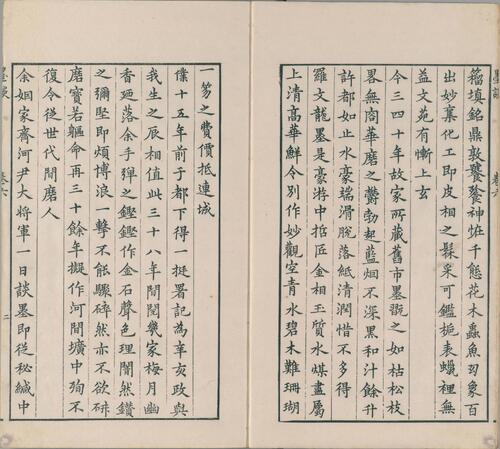 籀填銘鼎敦饕餮神怪千態花木蟲魚羽象百
出妙棄化工即皮相之髹采可鑑梔表蠟裡無
益文苑有慚上玄
今三四十年故家所藏舊市墨翫之如枯松枝
畧無商華磨之鬱勃起藍烟不深黑和汁餘升
許都如止水豪端滑脫落紙清潤惜不多得
羅文龍墨是豪游中捂匠金相玉質水煤盡屬
上清高華鮮令別作妙觀空青水碧木難珊瑚
一笏之費價抵連城
僕十五年前于都下得一挺署記為辛亥政與
我生之辰相值此三十八年間閱幾家梅月幽
香迺落余手彈之鏗鏗作金石聲色理闇然鑽
之彌堅即煩博浪一擊不能驟碎然亦不欲硏
磨寶若軀命再三十餘年擬作河間壙中殉不
復令後世代間磨人
余姻家齊河尹大將軍一日談墨即從秘緘中
卷六
二